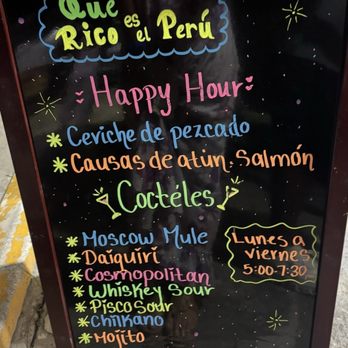 Que
Rico es el Perú
Happy Hour
Ceviche de pezcado
Causas de atún. Salmón
Coctéles
Moscow Mule
Daiquirí
Cosmopolitan
Whiskey Sour
Pisco Sour
Chilkano
Mojito
Lunes a
viernes
5:00-7:30